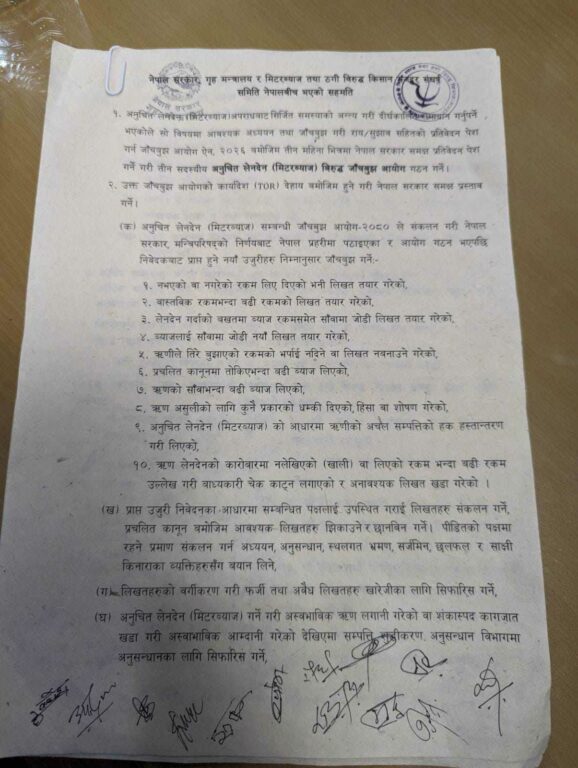 नेपाल सरकार, गृह मन्त्रालय र मिटरब्याज तथा ठगी विरुद्ध किसान मजदुर संघर्ष
समिति नेपालबीच भएको सहमति
१. अनुचित लेनदेन (मिटरब्याज)अपराधबाट सिर्जित समस्याको अन्त्य गरी दीर्घकालिन समाधान गर्नुपर्ने
भएकोले सो विषयमा आवश्यक अध्ययन तथा जाँचबुझ गरी राय/सुझाव सहितको प्रतिवेदन पेश
गर्न जाँचबुझ आयोग ऐन, २०२६ बमोजिम तीन महिना भित्रमा नेपाल सरकार समक्ष प्रतिवेदन पेश
गर्ने गरी तीन सदस्यीय अनुचित लेनदेन (मिटरब्याज) विरुद्ध जाँचबुझ आयोग गठन गर्ने।
२. उक्त जाँचबुझ आयोगको कार्यादेश (TOR) देहाय बमोजिम हुने गरी नेपाल सरकार समक्ष प्रस्ताव
गर्ने।
(क) अनुचित लेनदेन (मिटरब्याज) सम्बन्धी जाँचबुझ आयोग-२०८० ले संकलन गरी नेपाल
सरकार, मन्त्रिपरिषद्को निर्णयबाट नेपाल प्रहरीमा पठाइएका र आयोग गठन भएपछि
निवेदकबाट प्राप्त हुने नयाँ उजुरीहरु निम्नानुसार जाँचबुझ गर्ने:-
१. नभएको वा नगरेको रकम लिए दिएको भनी लिखत तयार गरेको,
२. वास्तविक रकमभन्दा बढी रकमको लिखत तयार गरेको,
३. लेनदेन गर्दाको बखतमा ब्याज रकमसमेत साँवामा जोडी लिखत तयार गरेको,
४. ब्याजलाई साँवामा जोडी नयाँ लिखत तयार गरेको,
५. ऋणीले तिरे बुझाएको रकमको भर्पाई नदिने वा लिखत नबनाउने गरेको,
६. प्रचलित कानूनमा तोकिएभन्दा बढी ब्याज लिएको,
७. ऋणको साँवाभन्दा बढी ब्याज लिएको,
८. ऋण असुलीको लागि कुनै प्रकारको धम्की दिएको, हिंसा वा शोषण गरेको,
९. अनुचित लेनदेन (मिटरब्याज) को आधारमा ऋणीको अचल सम्पत्तिको हक हस्तान्तरण
गरी लिएको,
१०. ऋण लेनदेनको कारोवारमा नलेखिएको (खाली) वा लिएको रकम भन्दा बढी रकम
उल्लेख गरी बाध्यकारी चेक काट्न लगाएको र अनावश्यक लिखत खडा गरेको ।
(ख) प्राप्त उजुरी निवेदनका आधारमा सम्बन्धित पक्षलाई उपस्थित गराई लिखतहरु संकलन गर्ने,
प्रचलित कानून बमोजिम आवश्यक लिखतहरु झिकाउने र छानविन गर्ने। पीडितको पक्षमा
रहने प्रमाण संकलन गर्न अध्ययन, अनुसन्धान, स्थलगत भ्रमण, सर्जमिन, छलफल र साक्षी
किनाराका व्यक्तिहरुसँग बयान लिने,
(ग) लिखतहरुको वर्गीकरण गरी फर्जी तथा अवैध लिखतहरु खारेजीका लागि सिफारिस गर्ने,
(घ) अनुचित लेनदेन (मिटरब्याज) गर्ने गरी अस्वभाविक ऋण लगानी गरेको वा शंकास्पद कागजात
खडा गरी अस्वाभाविक आम्दानी गरेको देखिएमा सम्पत्ति शुद्धीकरण अनुसन्धान विभागमा
अनुसन्धानका लागि सिफारिस गर्ने,